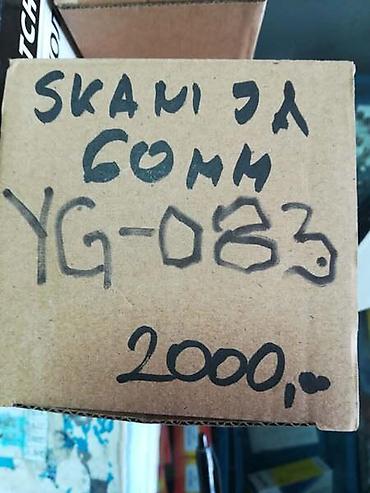 SKANIJA
60MM
YG-083.
2000,-